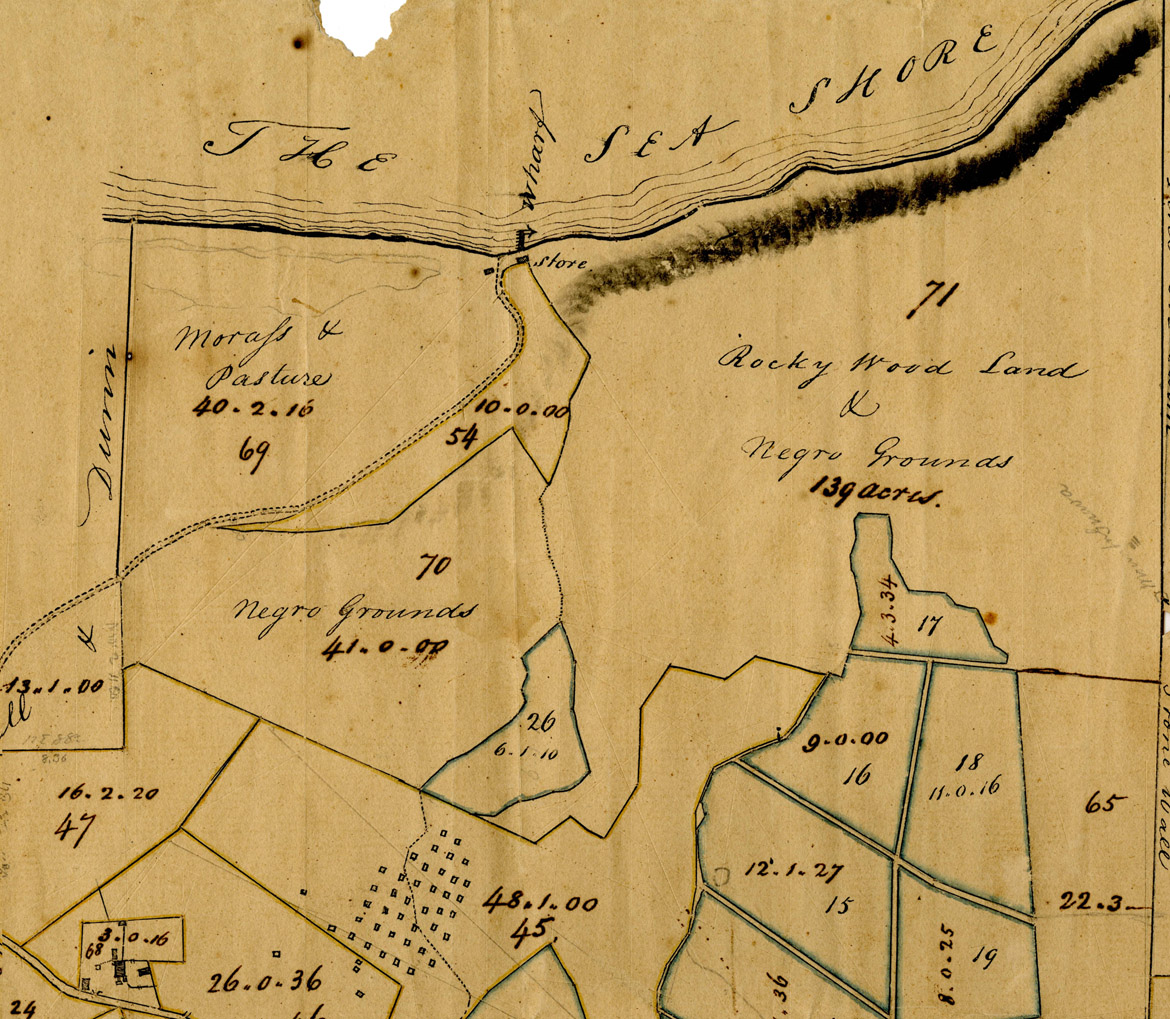 THE SEA SHORE
Wharf
Store
Morass &
Pasture
40.2.16
69
10.0.00
54
71
Rocky Wood Land
&
Negro Grounds
139 acres.
Dunn
&
70
Negro Grounds
41.0.00
4.3.34
17
13.1.00
ll
26
6.1.10
9.0.00
16
18
11.0.16
65
22.3
16.2.20
47
12.1.27
15
48.1.00
45
3.0.16
68
26.0.36
46
24
36
8.0.25
19
Stone Wall